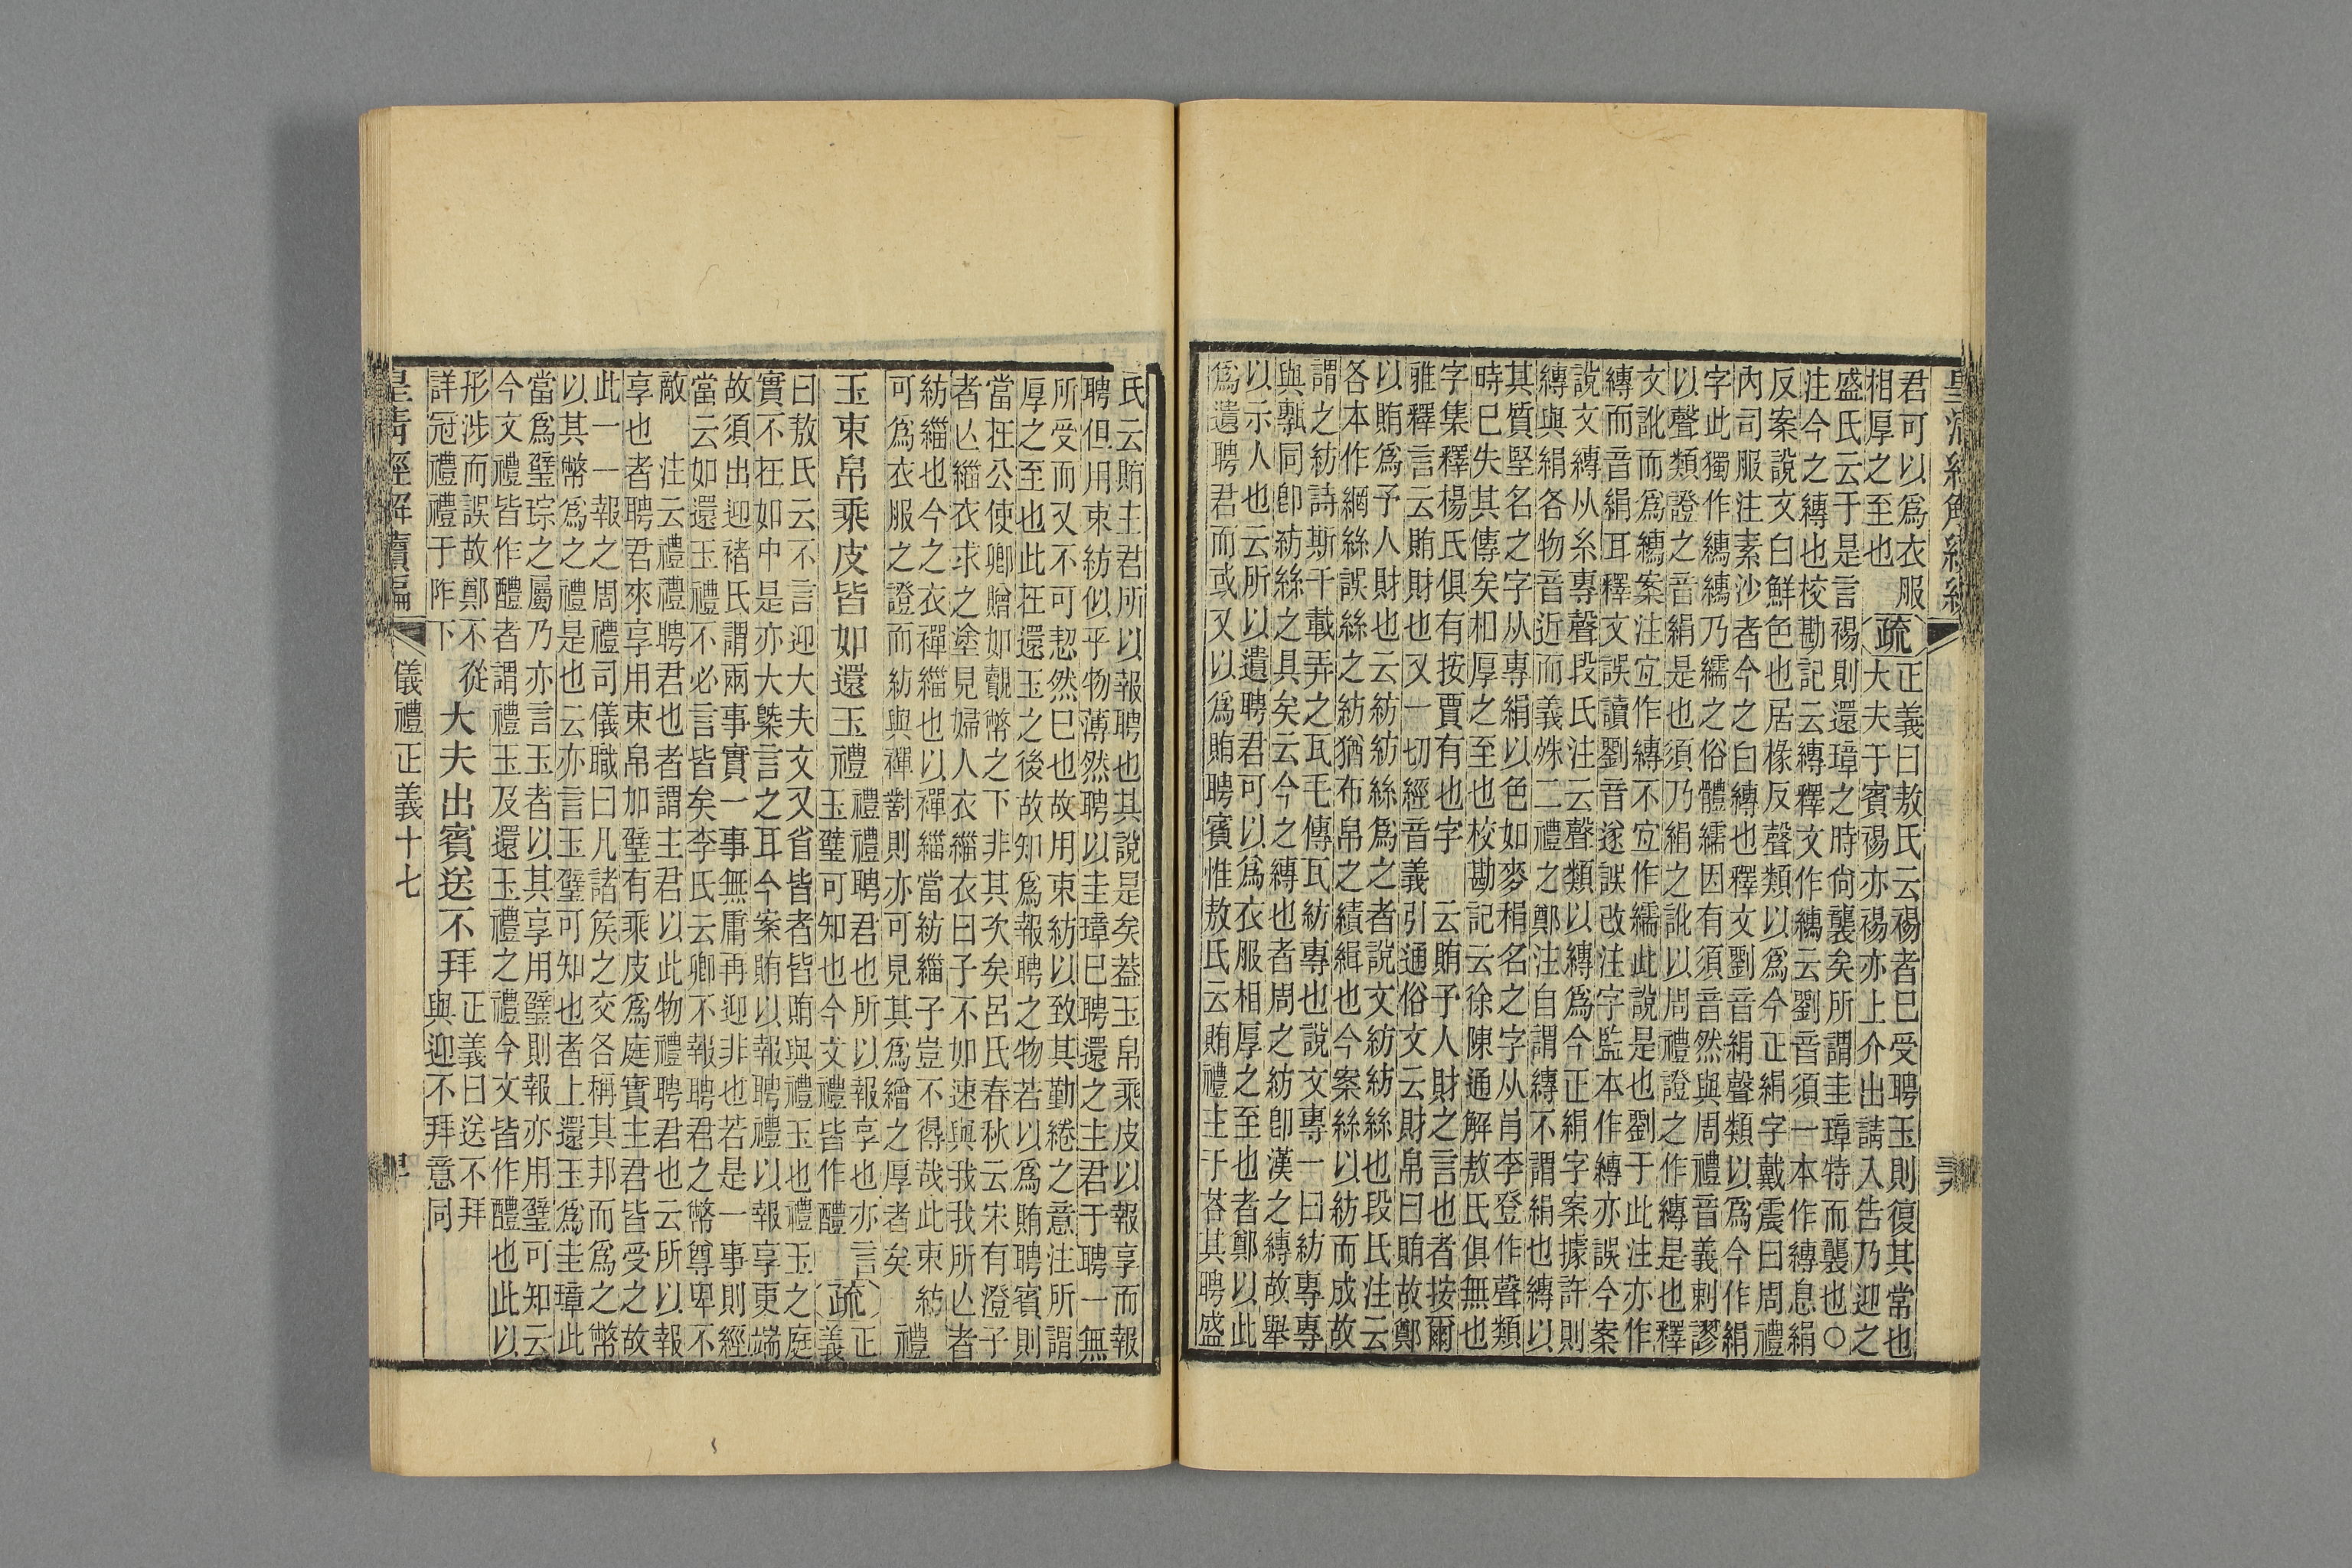 君可以爲衣服
相厚之至也
疏
正義曰敖氏云裼者已受聘玉則復其常也
大夫于賓裼亦裼亦上介出請入告乃迎之
盛氏云于是言裼則還璋之時尙襲矣所謂圭璋特而襲也〇
注今之縳也校勘記云縳釋文作䌰云劉音須一本作縳息絹
反案說文白鮮色也居椽反聲類以爲今正絹字戴震曰周禮
內司服注素沙者今之白縳也釋文劉音絹聲類以爲今作絹
字此獨作䌰䌰乃繻之俗體繻因有須音然與周禮音義刺謬
以聲類證之音絹是也須乃絹之訛以周禮證之作縳是也釋
文訛而爲䌰案注宜作縳不宜作繻此說是也劉于此注亦作
縳而音絹耳釋文誤讀劉音遂誤改注字監本作縳亦誤今案
說文縳从糸專聲段氏注云聲類以縳爲今正絹字案據許則
縳與絹各物音近而義姝二禮之鄭注自謂縳不謂絹也縳以
其質堅名之字从專絹以色如麥稍名之字从肙李登作聲類
時已失其傳矣相厚之至也校勘記云徐陳通解敖氏俱無也
字集釋楊氏俱有按賈有也字 云賄予人財之言也者按爾
雅釋言云賄財也又一切經音義引通俗文云財帛曰賄故鄭
以賄爲予人財也云紡紡絲爲之者說文紡紡絲也段氏注云
各本作網絲誤絲之紡猶布帛之績緝也今案絲以紡而成故
謂之紡詩斯干載弄之瓦毛傳瓦紡專也說文專一曰紡專專
與甎同卽紡絲之具矣云今之縳也者周之紡卽漢之縳故舉
以示人也云所以遺聘君可以爲衣服相厚之至也者鄭以此
爲遺聘君而或又以爲賄聘賓惟敖氏云賄禮主于荅其聘盛
氏云賄主君所以報聘也其說是矣葢玉帛乘皮以報享而報
聘但用束紡似乎物薄然聘以圭璋已聘還之主君于聘一無
所受而又不可恝然已也故用束紡以致其勤綣之意注所謂
厚之至也此在還玉之後故知爲報聘之物若以爲賄聘賓則
當在公使卿贈如覿幣之下非其次矣呂氏春秋云宋有澄子
者亾緇衣求之塗見婦人衣緇衣曰子不如速與我我所亾者
紡緇也今之衣襌緇也以襌緇當紡緇子豈不得哉此束紡
可爲衣服之證而紡與襌對則亦可見其爲繒之厚者矣 禮
玉束帛乘皮皆如還玉禮
禮禮聘君也所以報享也亦言
玉璧可知也今文禮皆作醴
疏
正
義
曰敖氏云不言迎大夫文又省皆者皆賄與禮玉也禮玉之庭
實不在如中是亦大槩言之耳今案賄以報聘禮以報享更端
故須出迎褚氏謂兩事實一事無庸再迎非也若是一事則經
當云如還玉禮不必言皆矣李氏云卿不報聘君之幣尊卑不
敵 注云禮禮聘君也者謂主君以此物禮聘君也云所以報
享也者聘君來享用束帛加璧有乘皮爲庭實主君皆受之故
此一一報之周禮司儀職曰凡諸矦之交各稱其邦而爲之幣
以其幣爲之禮是也云亦言玉璧可知也者上還玉爲圭璋此
當爲璧琮之屬乃亦言玉者以其享用璧則報亦用璧可知云
今文禮皆作醴者謂禮玉及還玉禮之禮今文皆作醴也此以
形涉而誤故鄭不從
詳冠禮禮于阼下
大夫出賓送不拜
正義曰送不拜
與迎不拜意同
皇清經解續編
儀禮正義十七